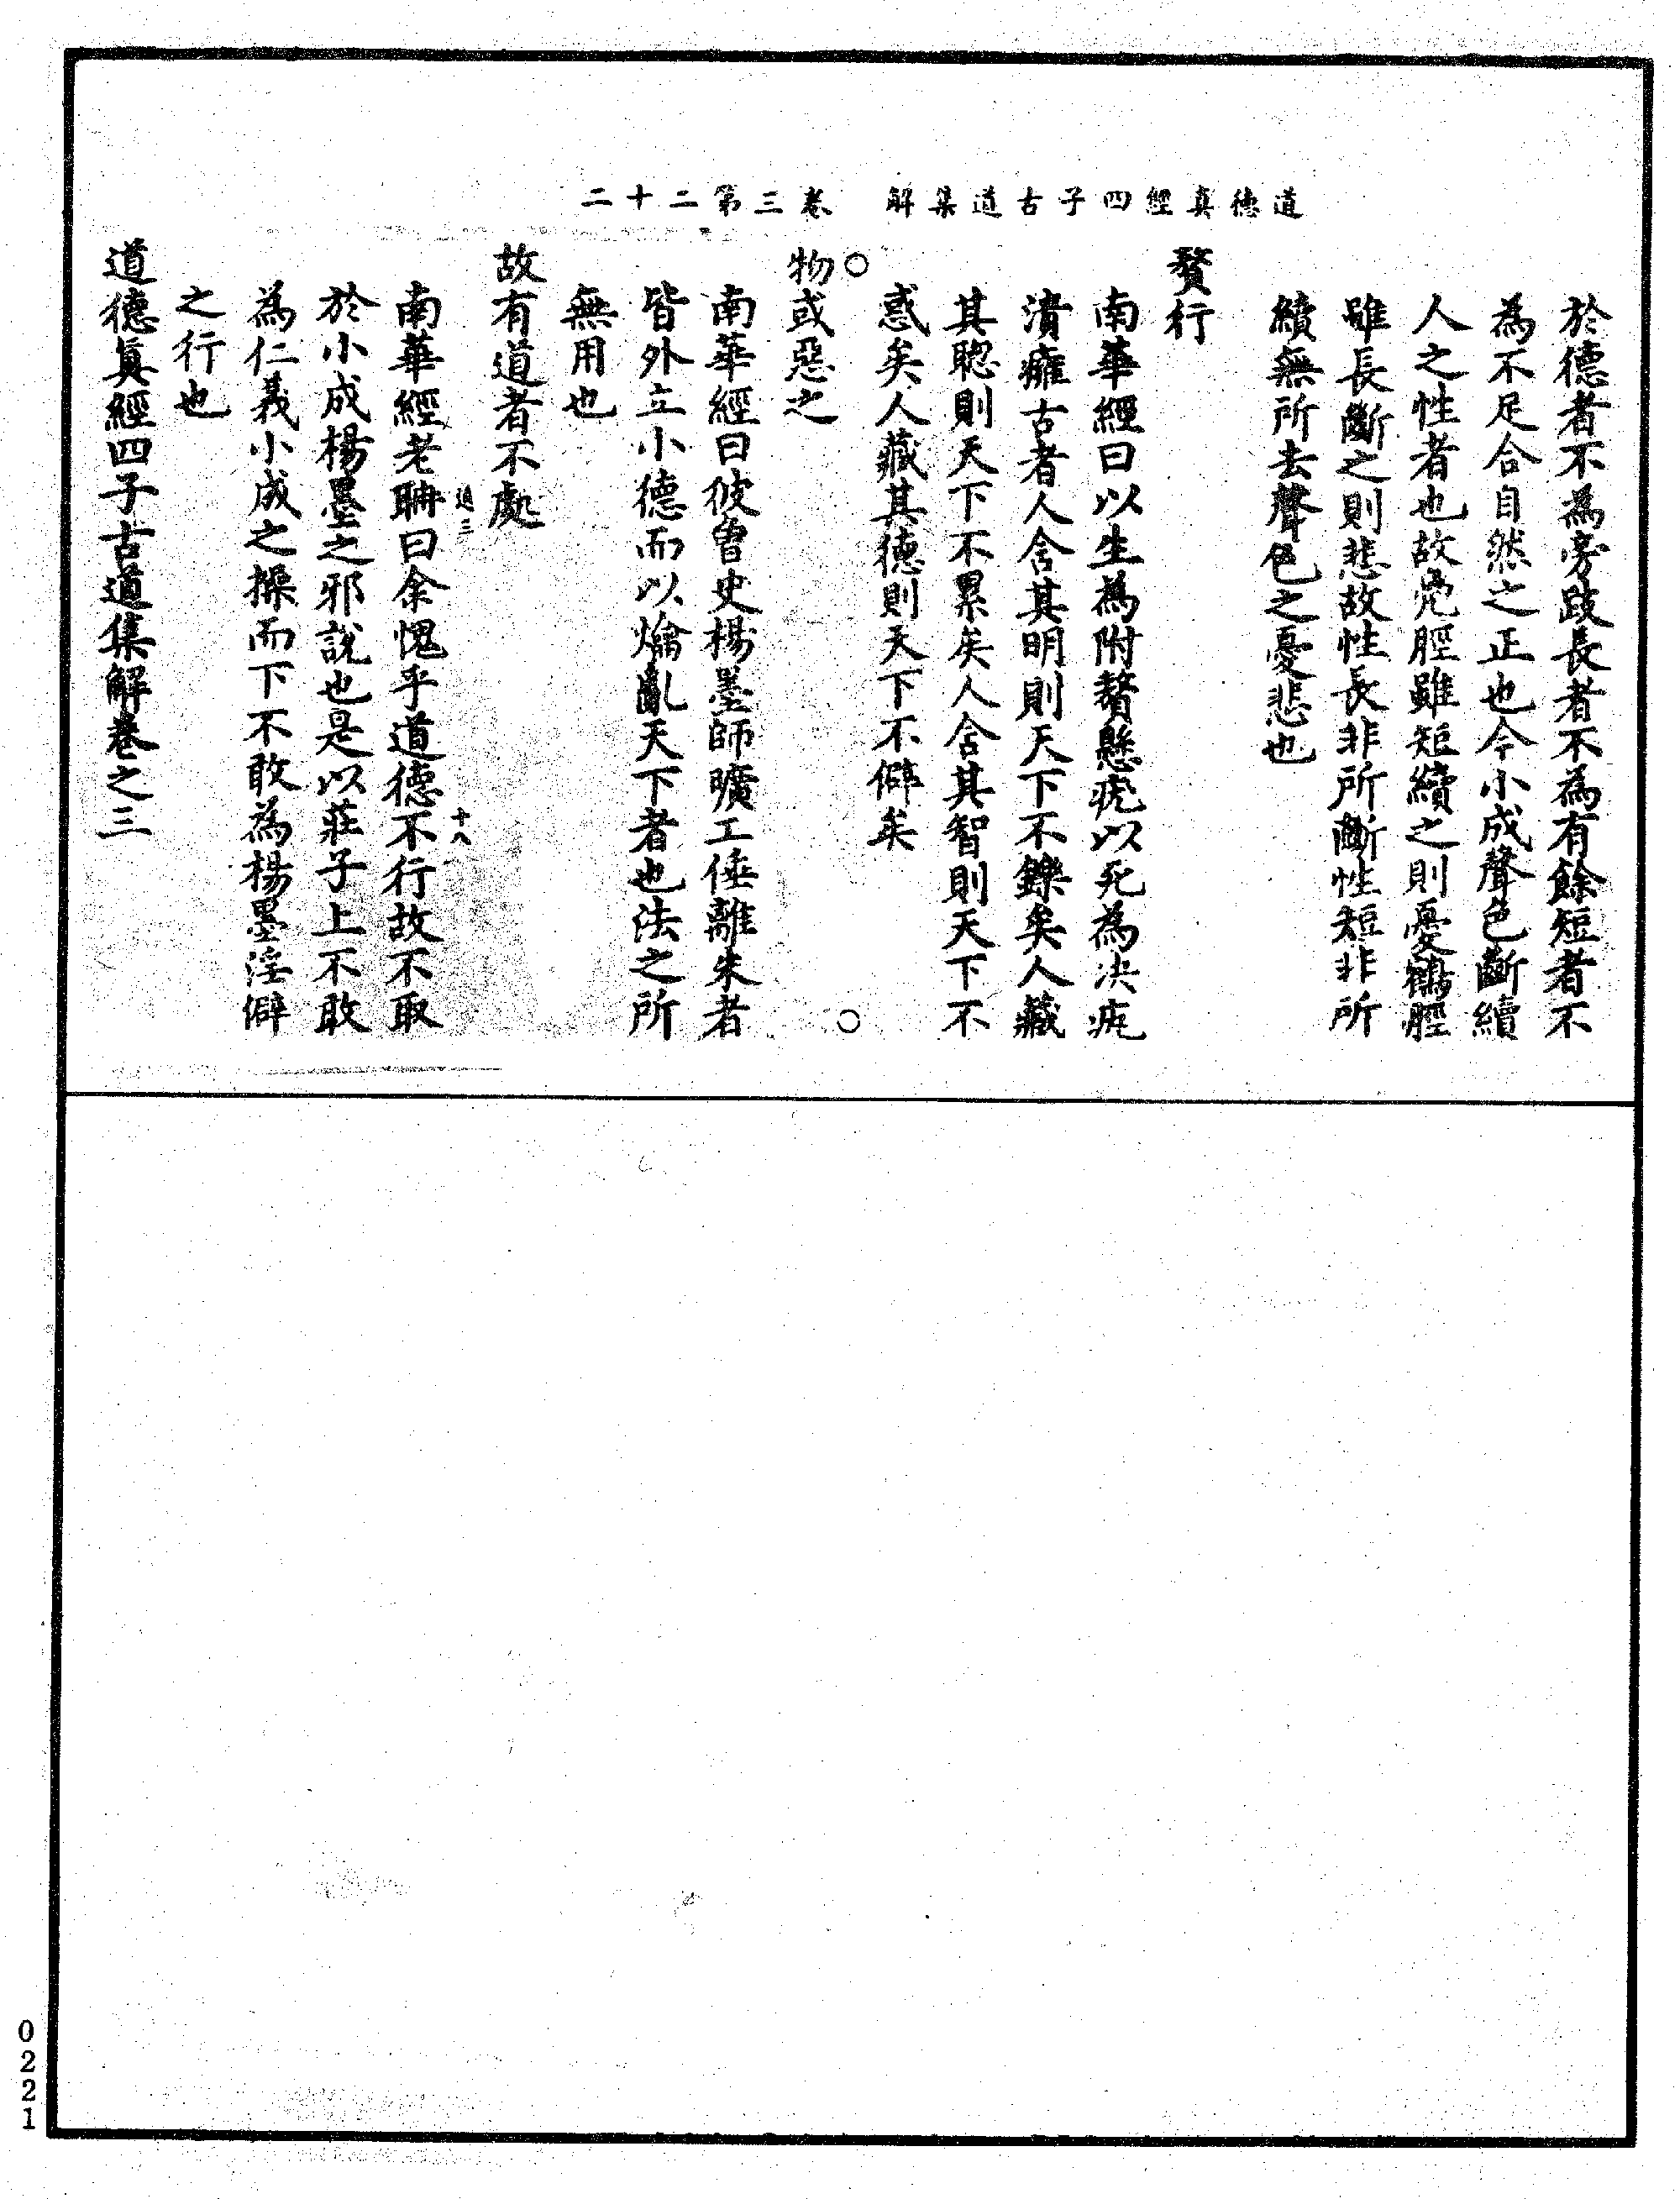 道德真經四子古道集解　卷三第二十二
於德者不為旁跂長者不為有餘短者不
為不足合自然之正也今小成聲色斷續
人之性者也故鳧脛雖短續之則憂鶴脛
雖長斷之則悲故性長非所斷性短非所
續無所去聲色之憂悲也
贅行
南華經曰以生為附贅懸疣以死為决𤴯
潰癰古者人含其明則天下不鑠矣人藏
其聦則天下不累矣人含其智則天下不
惑矣人藏其德則天下不僻矣
○　○
物或惡之
南華經曰彼曾史楊墨師曠工倕離朱者
皆外立小德而以爚亂天下者也法之所
無用也
故有道者不處
過三　十八
南華經老聃曰余愧乎道德不行故不取
於小成楊墨之邪說也是以莊子上不敢
為仁義小成之操而下不敢為楊墨淫僻
之行也
道德眞經四子古道集解卷之三
0221